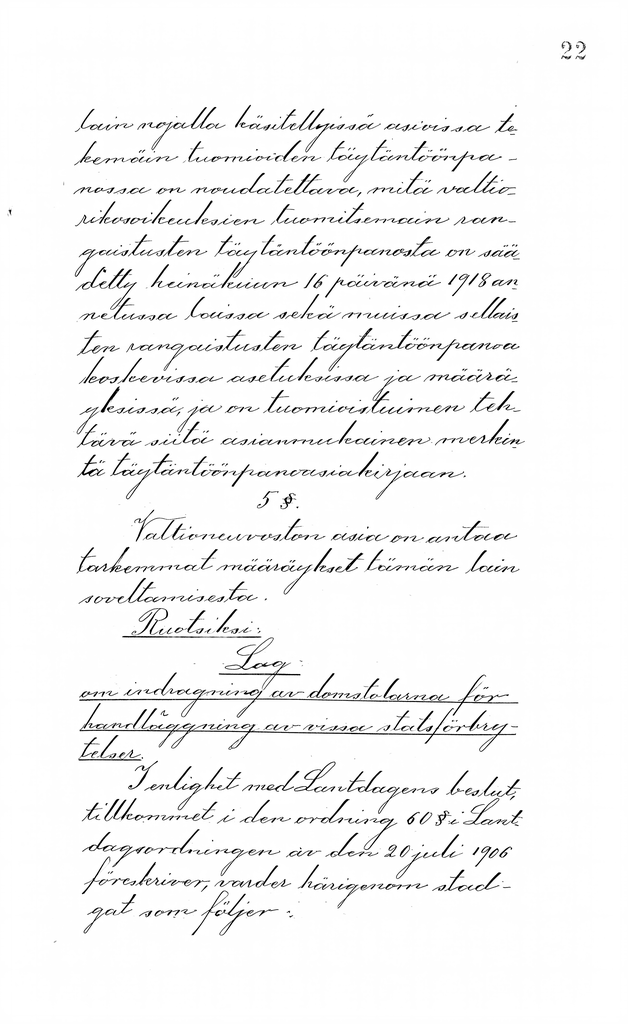 22
lain nojalla käsitellyissä asioissa te-
kemäin tuomioiden täytäntöönpa-
nossa on noudatettava, mitä valtio-
rikosoikeuksien tuomitsemain ran-
gaistusten täytäntöönpanosta on sää-
detty heinäkuun 16 päivänä 1918 an-
netussa laissa sekä muissa sellais-
ten rangaistusten täytäntöönpanoa
koskevissa asetuksissa ja määrä-
yksissä, ja on tuomioistuimen teh-
tävä siitä asianmukainen merkin-
tä täytäntöönpanoasiakirjaan.
5 §.
Valtioneuvoston asia on antaa
tarkemmat määräykset tämän lain
soveltamisesta.
Ruotsiksi:
Lag
om indragning av domstolarna för
handläggning av vissa statsförbry-
telser.
I enlighet med Lantdagens beslut,
tillkommet i den ordning 60 § i Lant-
dagsordningen av den 20 juli 1906
föreskriver, varder härigenom stad-
gat som följer: